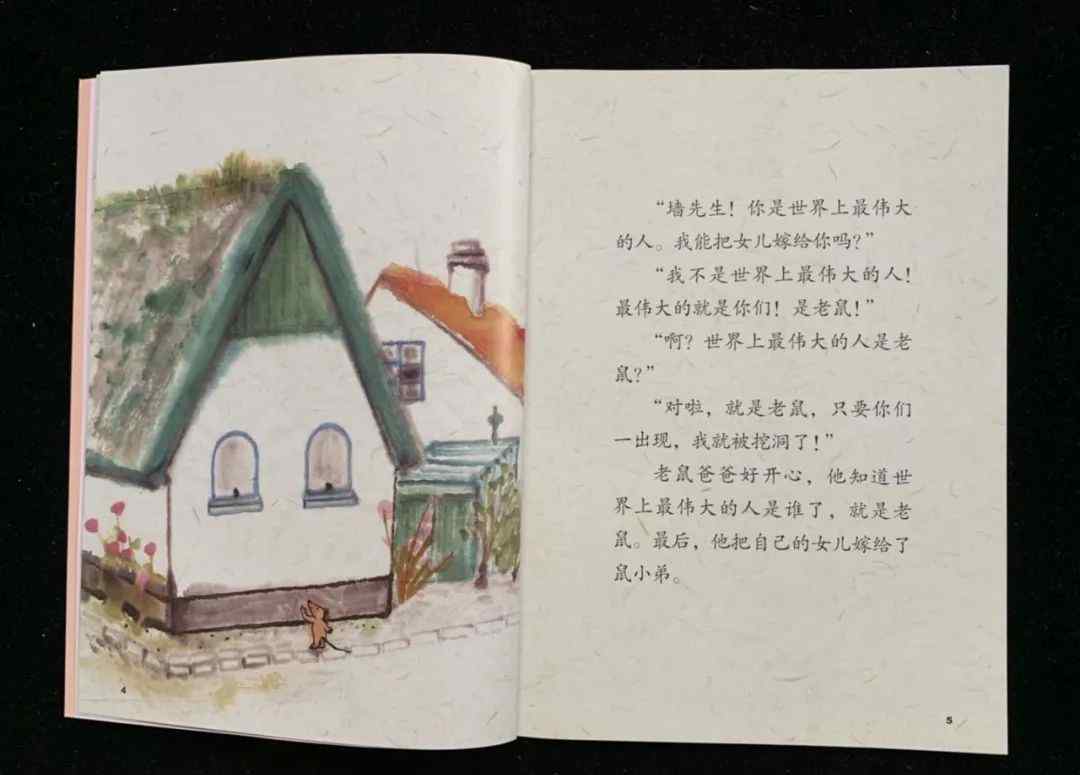 4
“墙先生！你是世界上最伟大
的人。我能把女儿嫁给你吗？”
“我不是世界上最伟大的人！
最伟大的就是你们！是老鼠！”
“啊？世界上最伟大的人是老
鼠？”
“对啦，就是老鼠，只要你们
一出现，我就被挖洞了！”
老鼠爸爸好开心，他知道世
界上最伟大的人是谁了，就是老
鼠。最后，他把自己的女儿嫁给了
鼠小弟。
5